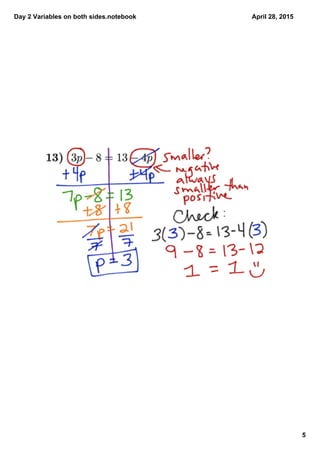 Day 2 Variables on both sides.notebook April 28, 2015
13) 3p − 8 = 13 − 4p smaller?
+4p +4p negative
always
7p − 8 = 13 smaller than
positive
+8 +8
Check:
7p = 21
7 7
3(3)−8 = 13−4(3)
p = 3
9 − 8 = 13 − 12
1 = 1
5